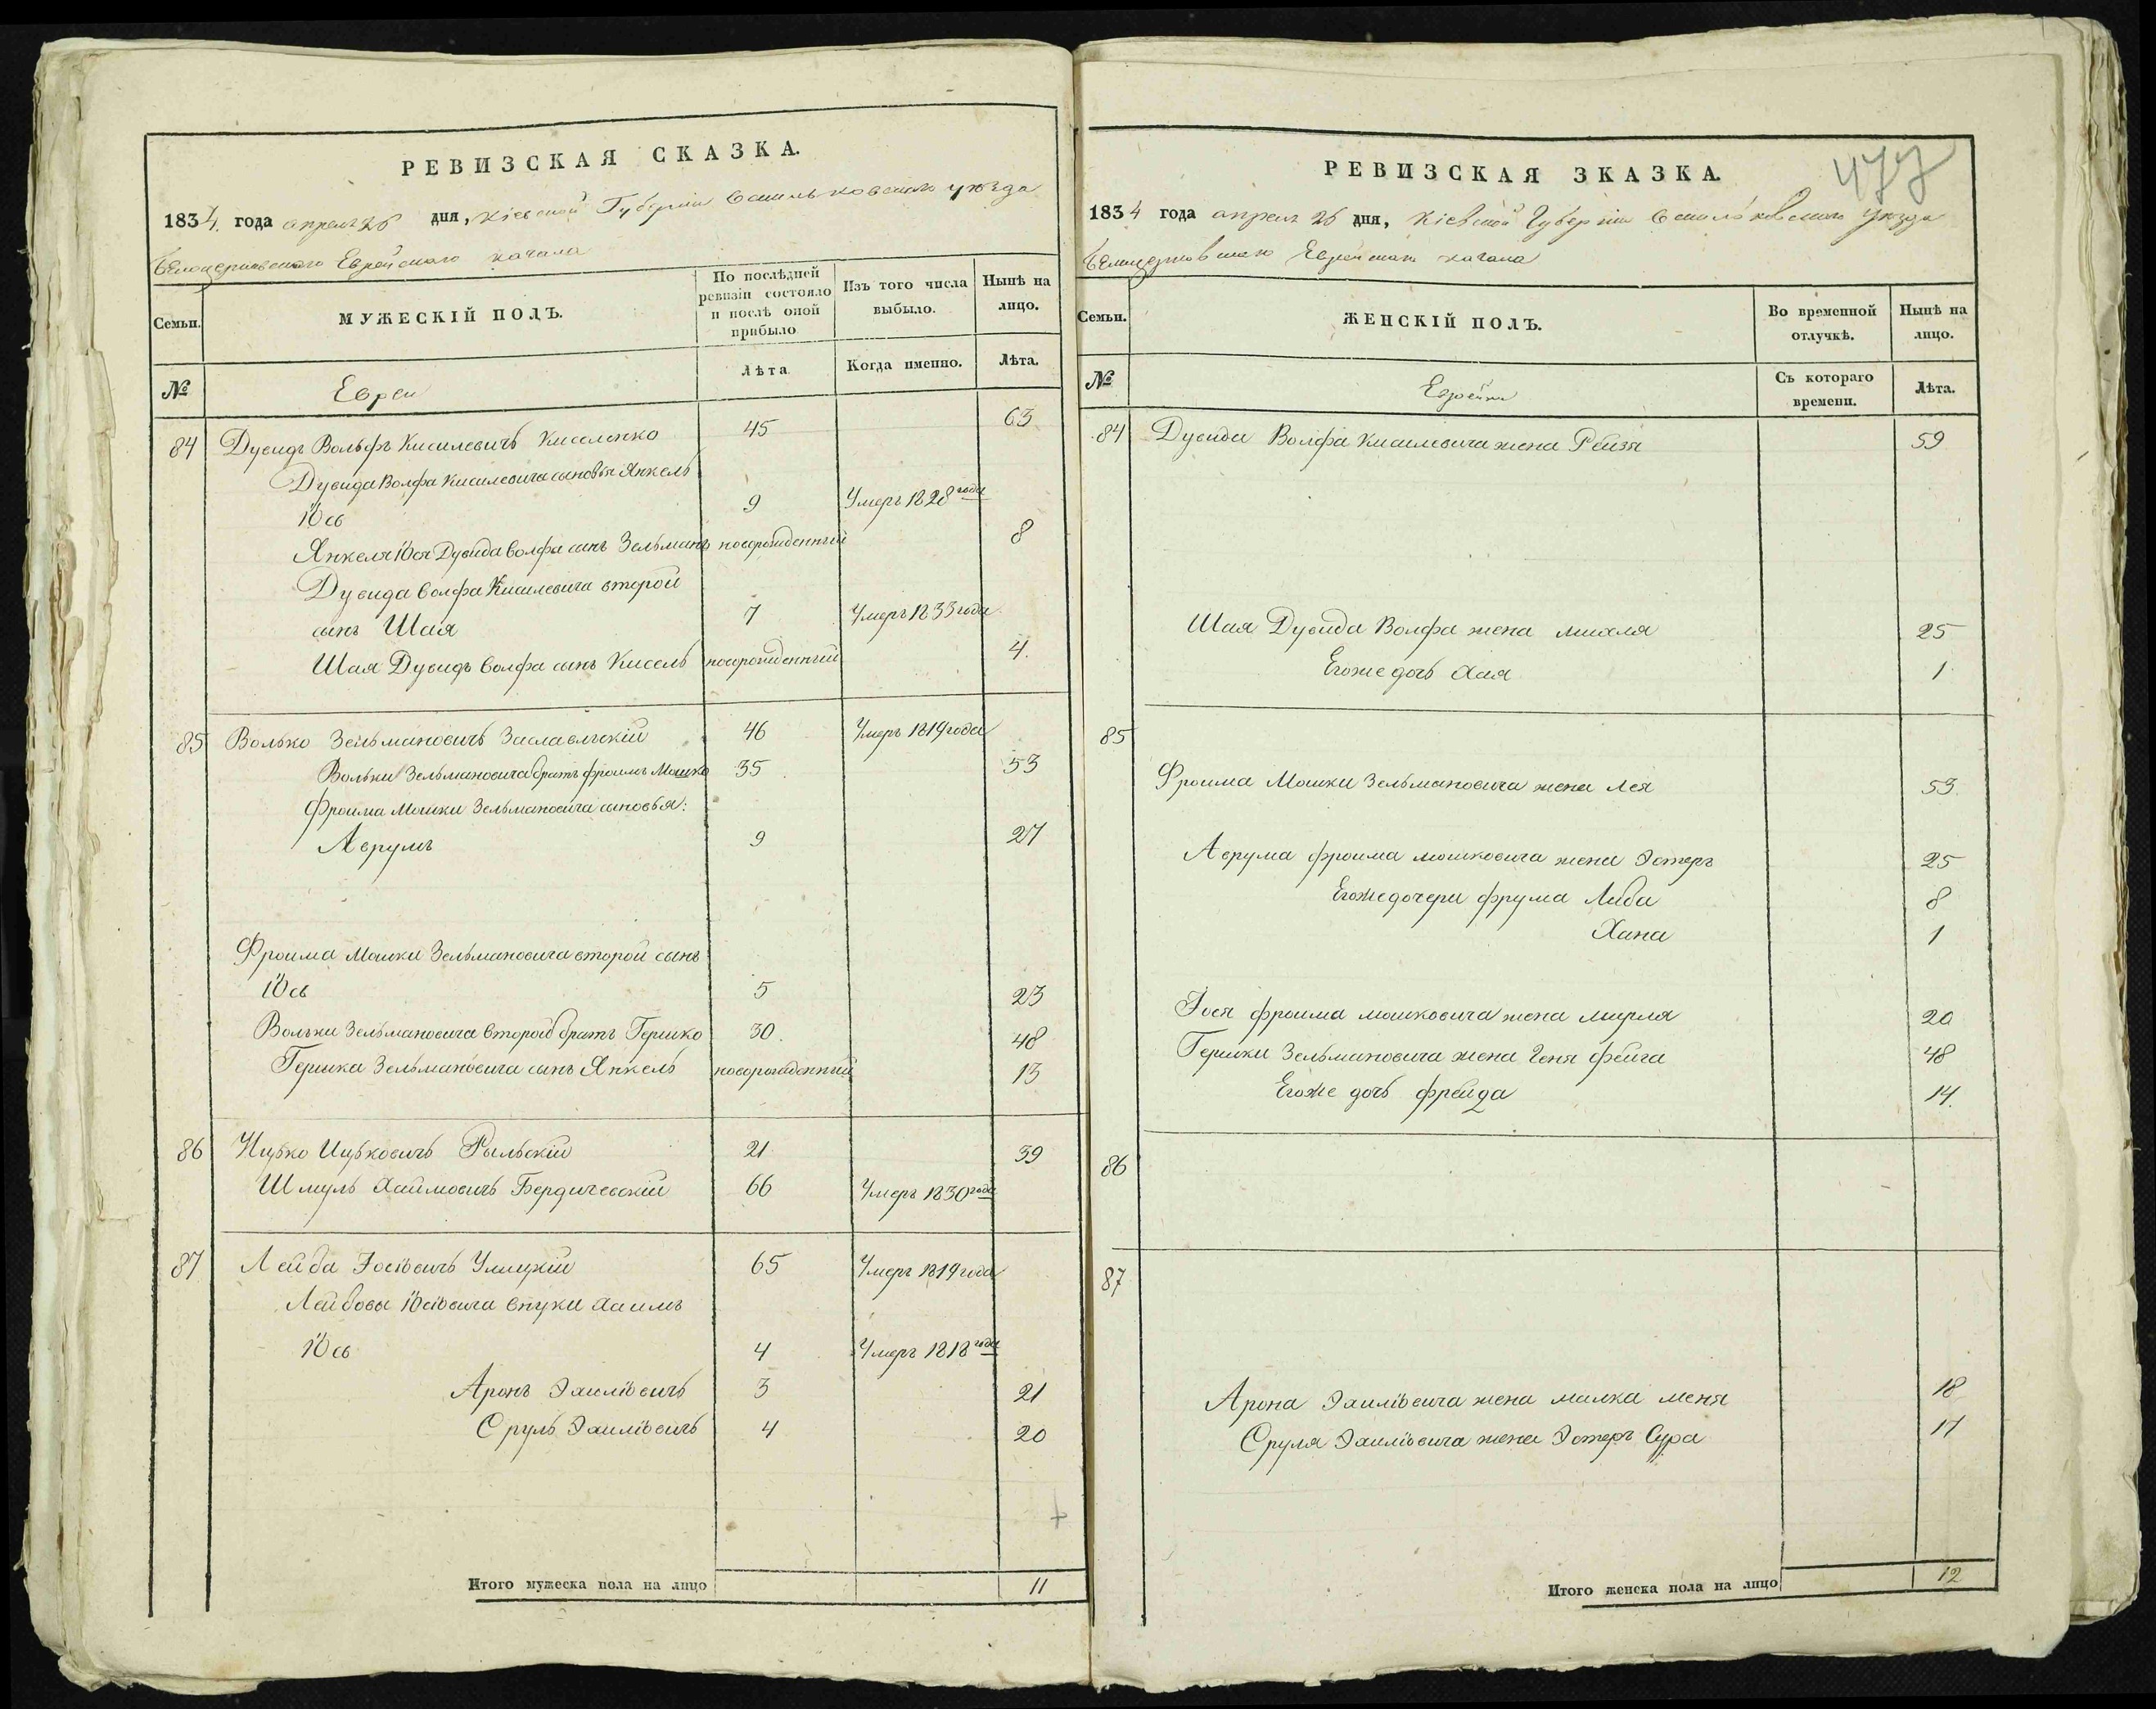 РЕВИЗСКАЯ СКАЗКА.
1834. года апреля 26 дня, Кіевской Губерніи Васильковскаго уѣзда
Бѣлоцерковскаго Еврейскаго кагала
Семьи.
МУЖЕСКІЙ ПОЛЪ.
По послѣдней ревизіи состояло и послѣ оной прибыло
Изъ того числа выбыло.
Нынѣ на лицо.
№
Евреи
Лѣта
Когда именно.
Лѣта.
84 Дувидъ Вольфъ Кисилевичъ Киселенко 45 63
Дувида Волфа Кисилевича сыновья Янкель
Юсь 9 Умеръ 1828 года
Янкеля Юся Дувида Волфа сынъ Зельманъ новорожденный 8
Дувида Волфа Кисилевича второй
сынъ Шая 7 Умеръ 1833 года
Шая Дувидъ Волфа сынъ Кисель новорожденный 4.
85 Волько Зельмановичъ Заславльскій 46 Умеръ 1819 года
Вольки Зельмановича братъ Фроимъ Мошко 35 53
Фроима Мошки Зельмановича сыновья:
Аврумъ 9 27
Фроима Мошки Зельмановича второй сынъ
Юсь 5 23
Вольки Зельмановича второй братъ Гершко 30. 48
Гершка Зельмановича сынъ Янкель новорожденный 13
86 Ицько Ицьковичъ Рыльскій 21 39
Шмуль Хаимовичъ Бердичевскій 66 Умеръ 1830 года
87 Лейба Іосіовичъ Улицкій 65 Умеръ 1819 года
Лейбовы Юсіовича внуки Хаимъ
Юсь 4 Умеръ 1818 года
Аронъ Хаимовичъ 3 21
Сруль Хаимовичъ 4 20
Итого мужеска пола на лицо 11
РЕВИЗСКАЯ ЗКАЗКА.
477
1834 года апреля 26 дня, Кіевской Губерніи Васильковскаго уѣзда
Бѣлоцерковскаго Еврейскаго кагала
Семьи.
ЖЕНСКІЙ ПОЛЪ.
Во временной отлучкѣ.
Нынѣ на лицо.
№
Еврейки
Съ котораго времени.
Лѣта.
84 Дувида Волфа Кисилевича жена Рейзя 59
Шая Дувида Волфа жена Михля 25
Егоже дочь Хая 1
85
Фроима Мошки Зельмановича жена Лея 53.
Аврума Фроима Мошковича жена Эстеръ 25
Егоже дочери Фрума Либа 8
Хана 1
Іося Фроима Мошковича жена Мирля 20
Гершки Зельмановича жена Геня Фейга 48
Егоже дочь Фрейда 14.
86
87
Арона Хаимовича жена Малка Меня 18
Сруля Хаимовича жена Эстеръ Сура 17
Итого женска пола на лицо 12